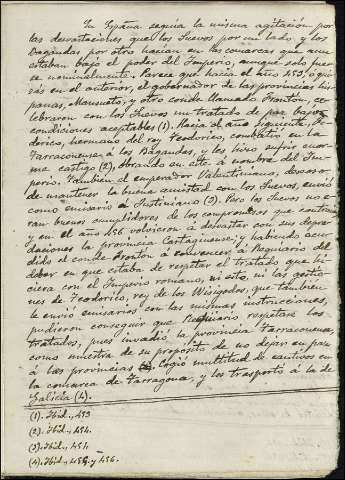 En España seguía la misma agitación por
las devastaciones que los Suevos por un lado y los
Bagaudas por otro hacían en las comarcas que aun
estaban bajo el poder del Imperio, aunque solo fue-
se nominalmente. Parece que hacia el año 453, o qui-
zás en el anterior, el gobernador de las provincias his-
panas, Mansueto, y otro conde llamado Fronton, ce-
lebraron con los Suevos un tratado de paz bajo
condiciones aceptables (1). Hacia el año siguiente, Fe-
derico, hermano del rey Teodorico, combatió en la
Tarraconense á los Bagaudas, y les hizo sufrir enor-
me castigo (2), obrando en esto á nombre del Im-
perio. Tambien el emperador Valentiniano, deseoso
de mantener la buena amistad con los Suevos, envió
como emisario á Justiniano (3). Pero los Suevos no e-
ran buenos cumplidores de los compromisos que contraían
y en el año 456 volvieron á devastar con sus depre-
daciones la provincia Cartaginense; y habiendo acu-
dido el conde Fronton á convencer á Requiario del
deber en que estaba de respetar el tratado que hi-
ciera con el Imperio romano, ni esto, ni las gestio-
nes de Teodorico, rey de los Wisigodos, que tambien
le envió emisarios con las mismas instrucciones,
pudieron conseguir que Requiario respetase los
tratados, pues invadió la provincia Tarraconense,
como muestra de su propósito de no dejar en paz
á las provincias cogió multitud de cautivos en
la comarca de Tarragona, y los trasportó á la de
Galicia (4).
(1). Ibid., 453
(2). Ibid., 454.
(3). Ibid., 454.
(4). Ibid., 455 y 456.